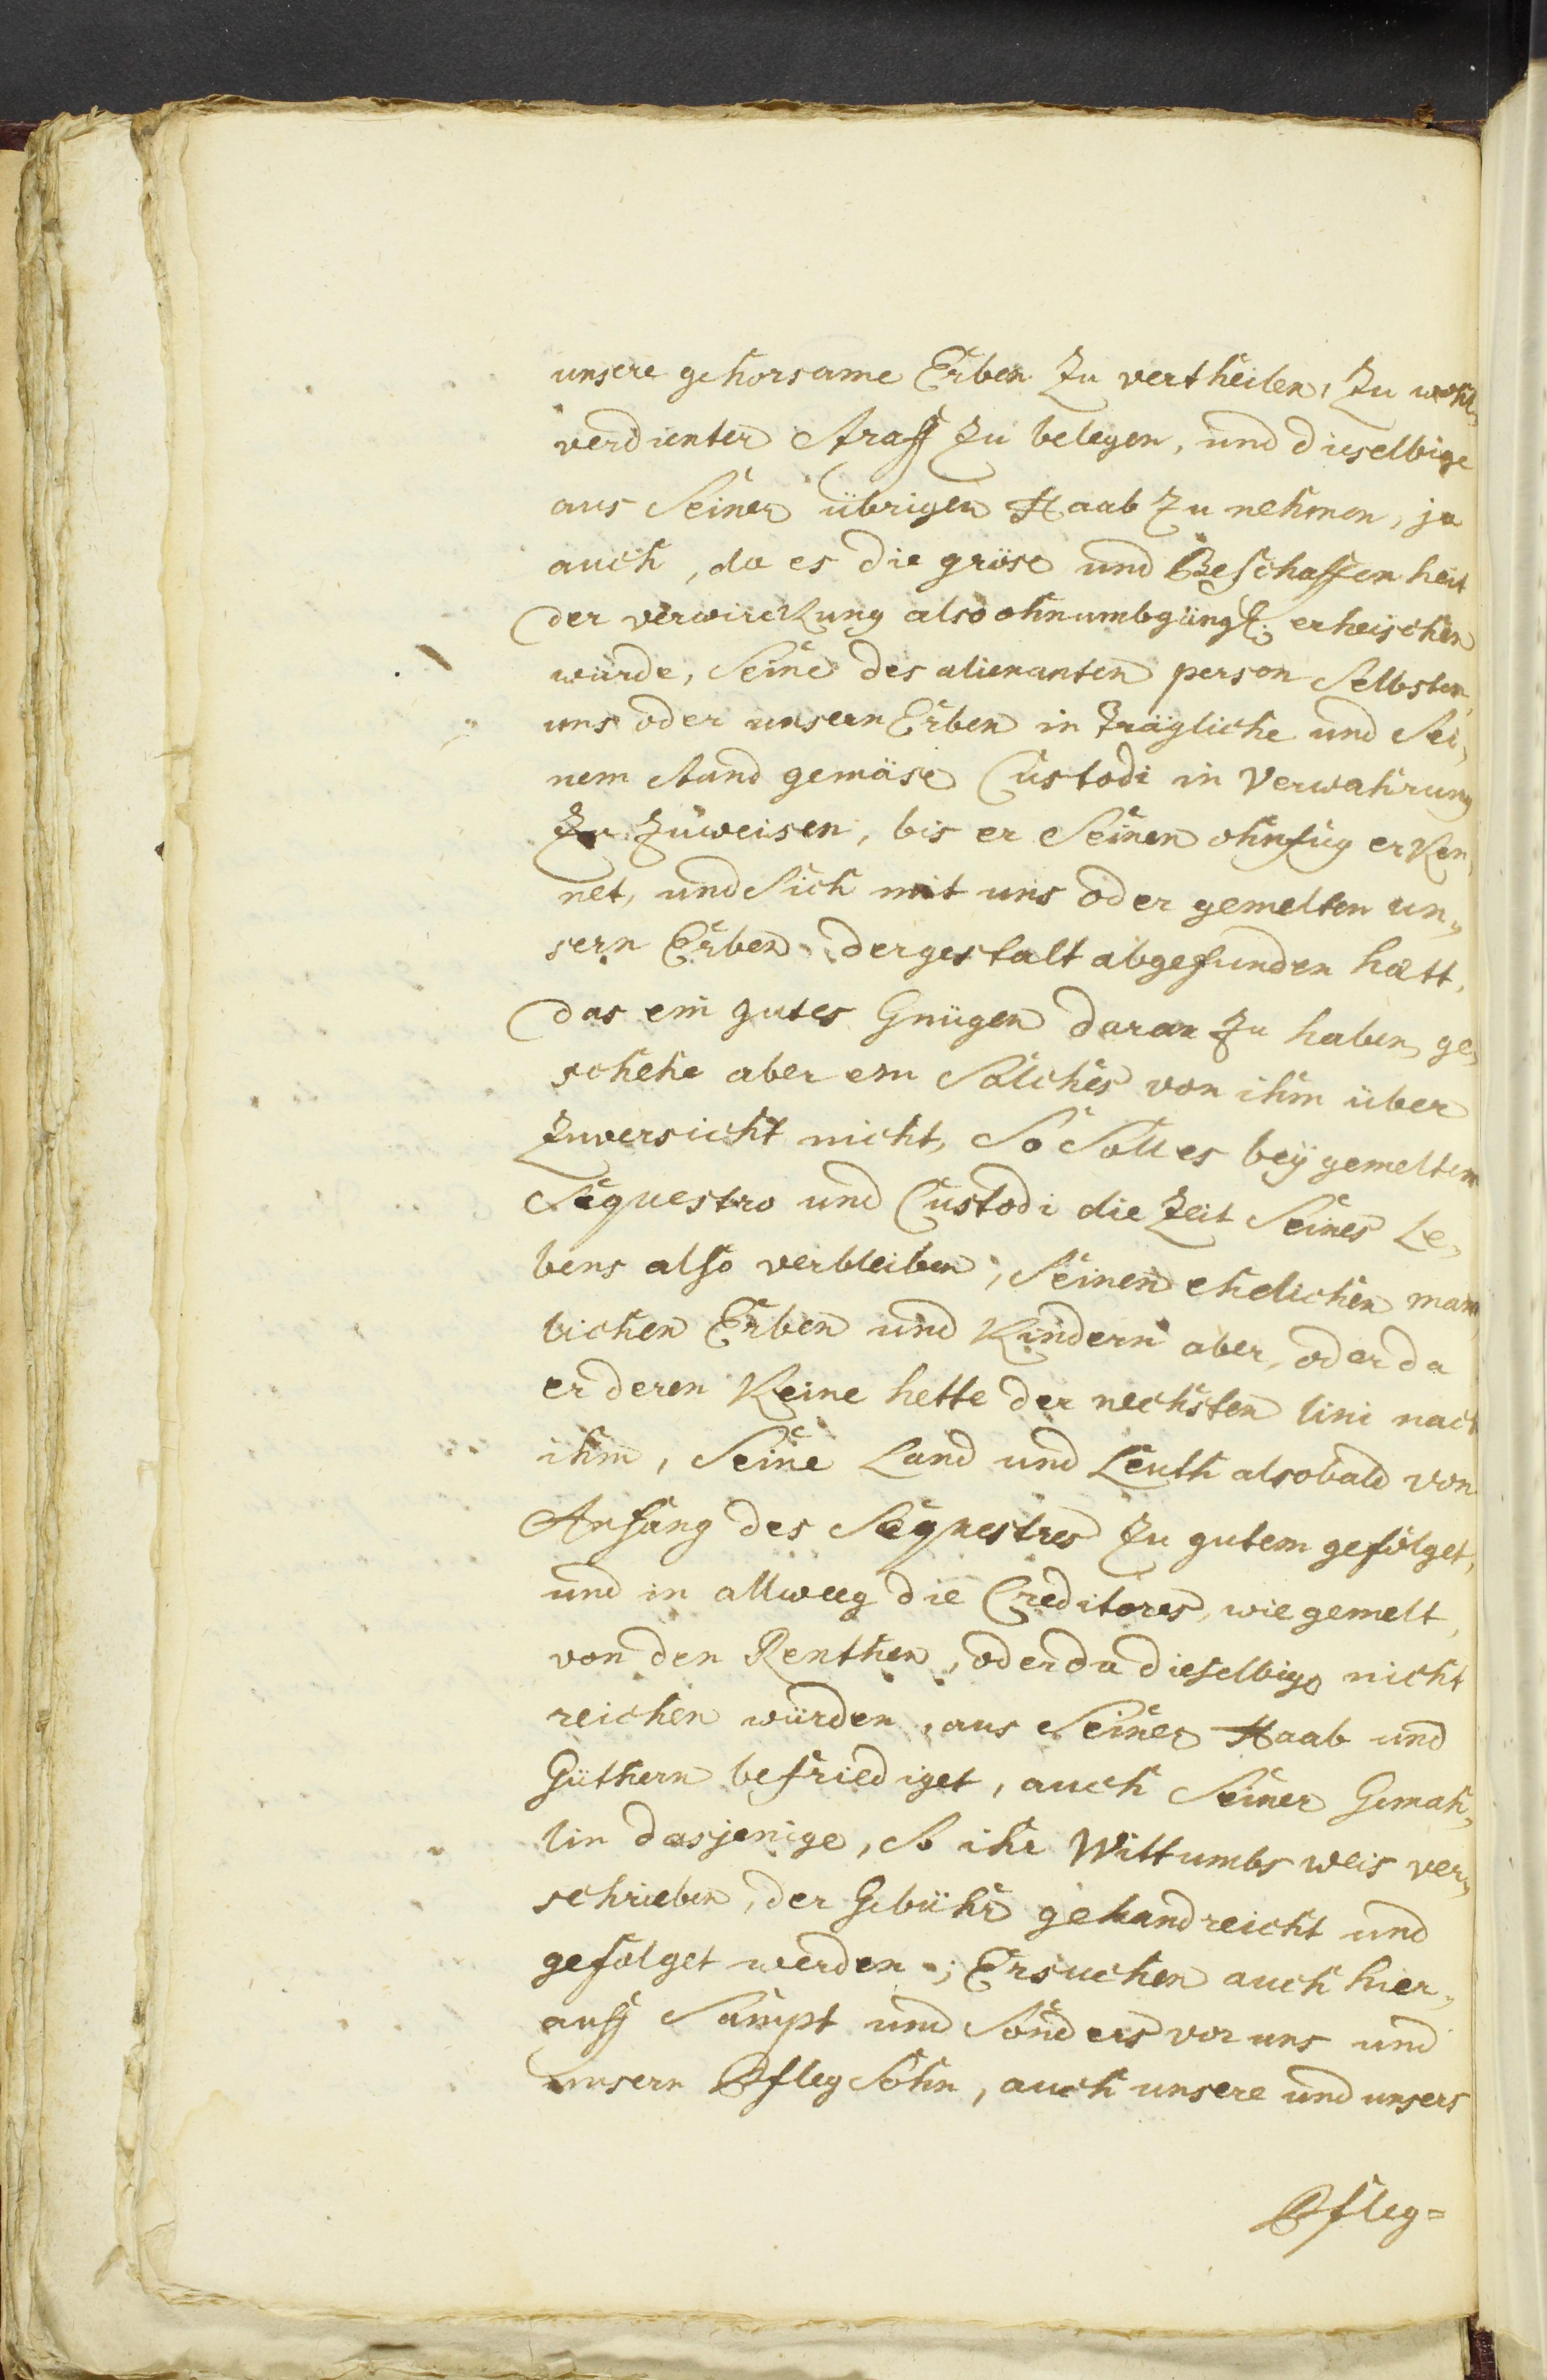 unsere gehorsame Erben zu vertheilen, zu wohl„
verdienter straff zu belegen, und dieselbige
aus Seiner übrigen Haab zu nehmen, ja
auch, da es die gröse und Beschaffenheit
der verwirckung also ohnumbgängl: erheischen
würde, Seine des alienanten person Selbsten,
uns oder unsern Erben in trägliche und Sei„
nem stand gemäse Custodi in Verwahrung
zu zuweisen, bis er Seinen ohnfug erken„
net, und Sich mit uns oder gemelten un„
sern Erben dergestalt abgefunden hatt,
das ein gutes Gnügen daran zu haben, ge„
schehe aber ein Solches von ihm über
Zuversicht nicht, So Soll es beÿ gemeltem
Sequestro und Custodi die Zeit Seines Le„
bens also verbleiben, Seinen ehelichen man„
lichen Erben und Kindern aber, oder da
er deren Keine hette der nechsten lini nach
ihm, Seine Land und Leuth alsobald von
Anfang des Sequestres zu gutem gefolget,
und in allweeg die Creditores, wie gemelt,
von den Renthen, oder da dieselbige nicht
reichen würden, aus Seiner Haab und
Güthern befriediget, auch Seiner Gemah„
lin dasjenige, So ihr Wittumbs weis ver„
schrieben, der Gebühr gehandreicht und
gefolget werden; Ersuchen auch hier„
auff Sampt und Sonders vor uns und
unsern Pfleg Sohn, auch unsere und unsers
Pfleg=